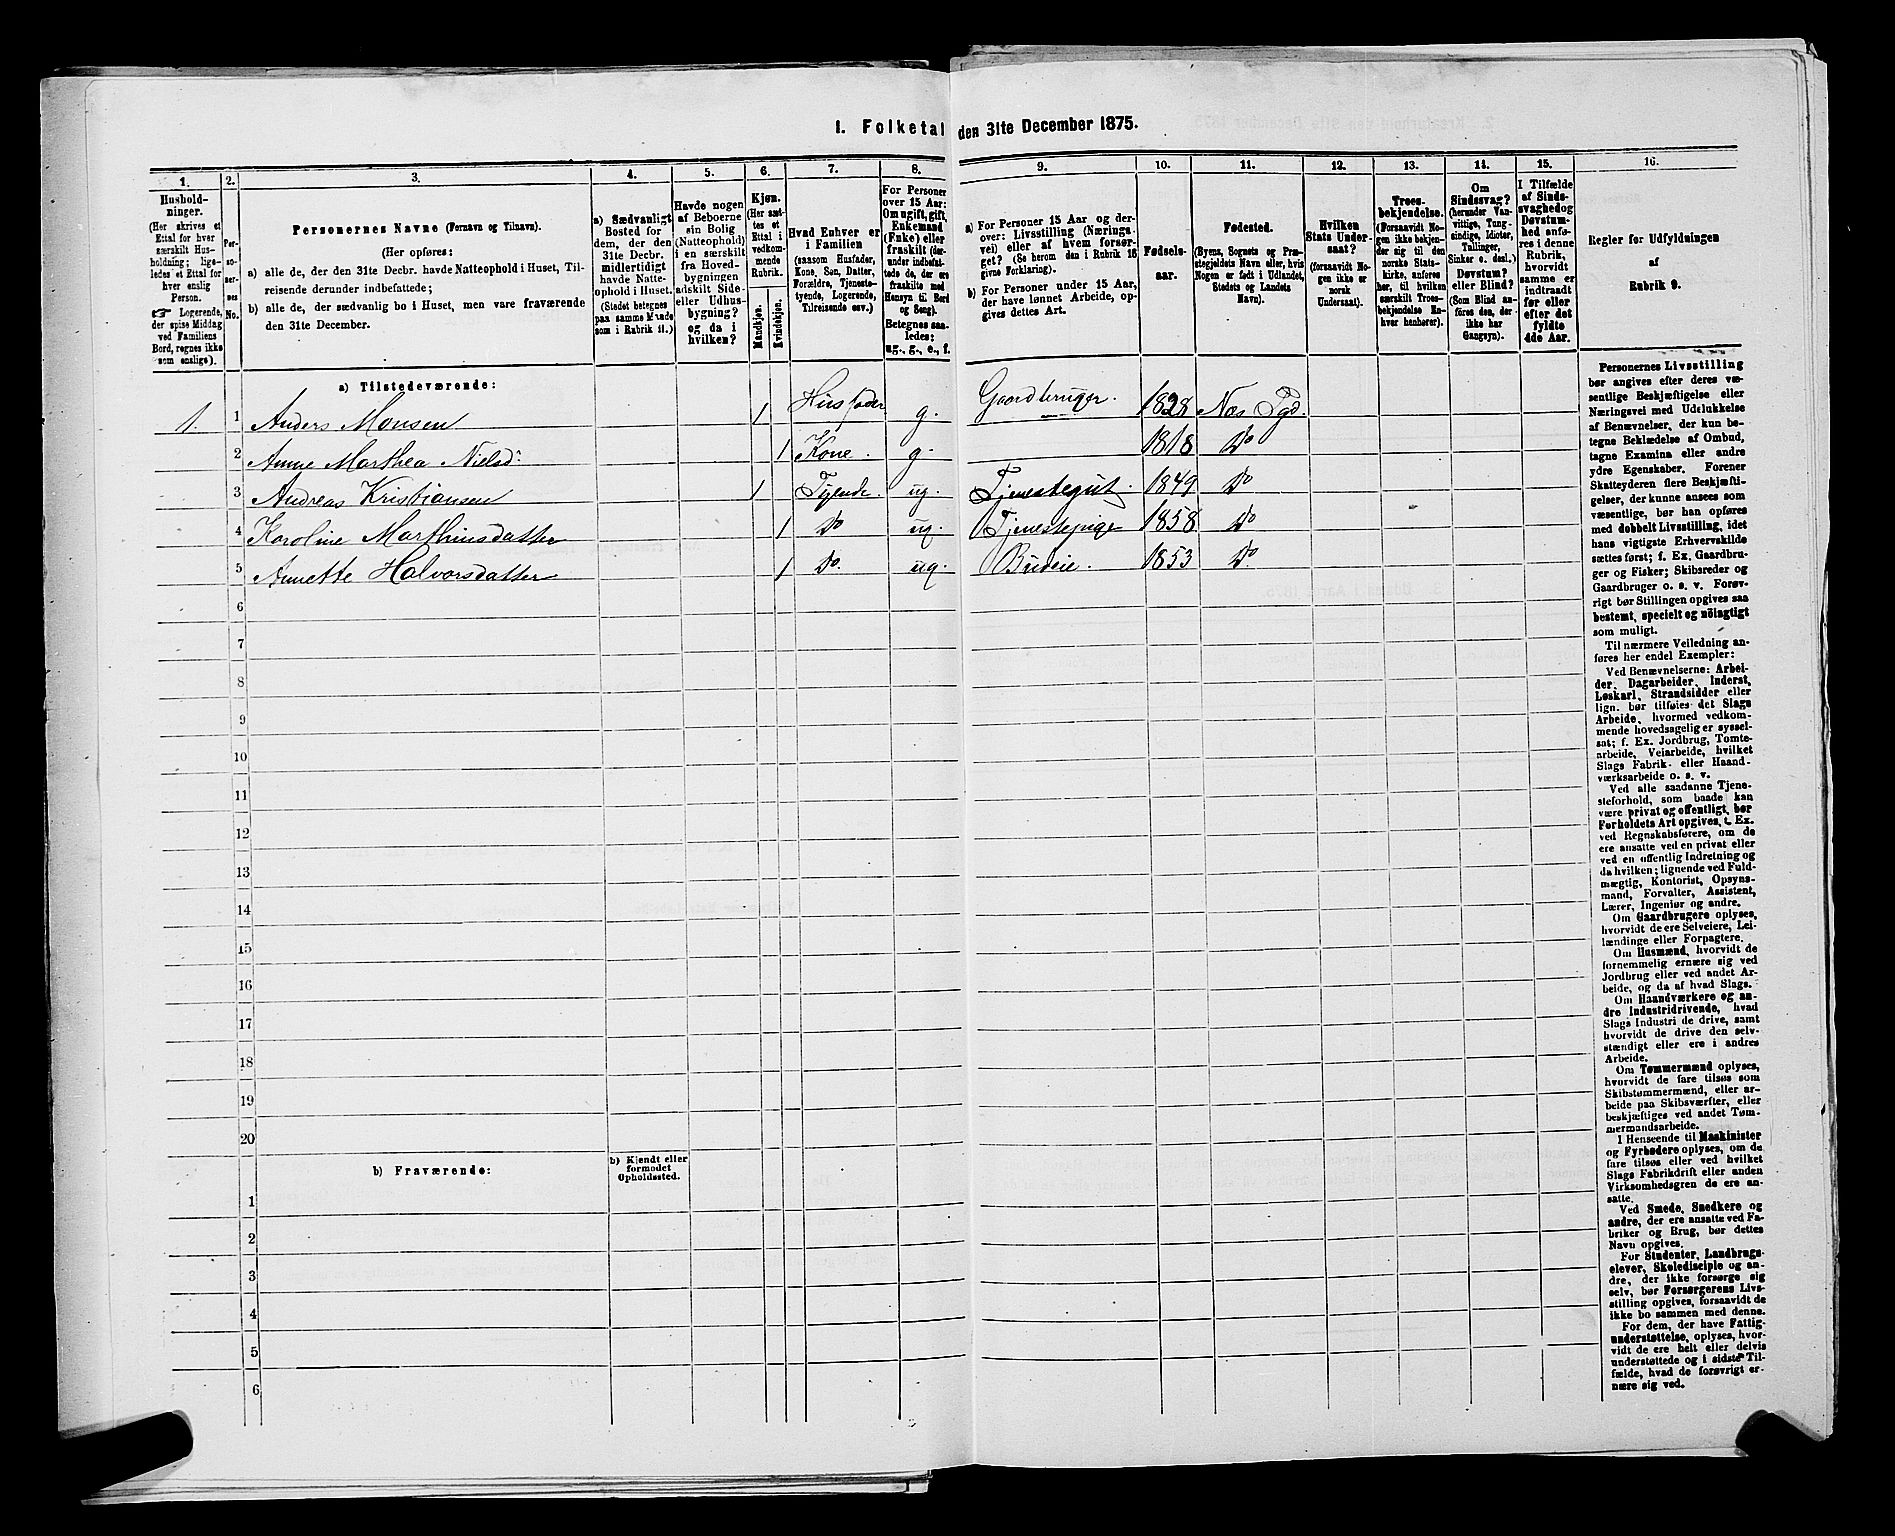 1. Folketal den 31te December 1875.
1.
Hushold-
ninger.
(Her skrives et
Ettal for hver
særskilt Hus-
holdning; lige-
ledes et Ettal for
hver enslig
Person.
☞ Logerende,
der spise Middag
ved Familiens
Bord, regnes ikke
som enslige).
2.
Per-
so-
ner-
nes
No.
3.
Personernes Navne (Fornavn og Tilnavn).
(Her opføres:
a) alle de, der den 31te Decbr. havde Natteophold i Huset, Til-
reisende derunder indbefattede;
b) alle de, der sædvanlig bo i Huset, men vare fraværende
den 31te December.
4.
a) Sædvanligt
Bosted for
dem, der den
31te Decbr.
midlertidigt
havde Natte-
ophold i Huset.
(Stedet betegnes
paa samme Maade
som i Rubrik 11.)
5.
Havde nogen
af Beboerne
sin Bolig
(Natteophold)
i en særskilt
fra Hoved-
bygningen
adskilt Side-
eller Udhus-
bygning?
og da i
hvilken?
6.
Kjøn.
(Her sæt-
tes et
Ettal i
vedkom-
mende
Rubrik.
Mandkjøn.
Kvindekjøn.
7.
Hvad Enhver er
i Familien
(saasom Husfader,
Kone, Søn, Datter,
Forældre, Tjeneste-
tyende, Logerende,
Tilreisende osv.)
8.
For Personer
over 15 Aar:
Om ugift, gift,
Enkemand
(Enke) eller
fraskilt (der-
under indbefat-
tede de, der ere
fraskilte med
Hensyn til Bord
og Seng).
Betegnes saa-
ledes:
ug., g., e., f.
9.
a) For Personer 15 Aar og der-
over: Livsstilling (Nærings-
vei) eller af hvem forsør-
get? (Se herom den i Rubrik 16
givne Forklaring).
b) For Personer under 15 Aar,
der have lønnet Arbeide, op-
gives dettes Art.
10.
Fødsels-
aar.
11.
Fødested.
(Byens, Sognets og Præ-
stegjeldets Navn eller, hvis
Nogen er født i Udlandet,
Stedets og Landets
Navn).
12.
Hvilken
Stats Under-
saat?
(forsaavidt No-
gen ikke er
norsk
Undersaat).
13.
Troes-
bekjendelse.
(Forsaavidt No-
gen ikke bekjen-
der sig til den
norske Stats-
kirke, anføres
her, til hvilken
særskilt Troes-
bekjendelse En-
hver henhører).
14.
Om
Sindssvag?
(herunder Van-
vittige, Tung-
sindige, Idioter,
Tullinger,
Sinker o. desl.)
Døvstum?
eller Blind?
(Som Blind an-
føres den, der
ikke har
Gangsyn).
15.
I Tilfælde
af Sinds-
svaghed og
Døvstum-
hed anfø-
res i denne
Rubrik,
hvorvidt
samme er
indtraadt
før eller
efter det
fyldte
4de Aar.
16.
Regler for Udfyldningen
af
Rubrik 9.
a) Tilstedeværende:
1. 1 Anders Monsen 1 Husfader g. Gaardbruger. 1828 Næs Pgd.
2 Anne Marthea Nielsd. 1 Kone. g. 1818 Do
3 Andreas Kristiansen 1 Tyende. ug. Tjenestegut. 1849 Do
4 Karoline Marthinsdatter 1 Do ug. Tjenestepige 1858 Do
5 Annette Halvorsdatter 1 Do. ug. Budeie. 1853 Do.
6
7
8
9
10
11
12
13
14
15
16
17
18
19
20
b) Fraværende:
b) Kjendt eller
formodet
Opholdssted.
1
2
3
4
5
6
Personernes Livsstilling
bør angives efter deres væ-
sentlige Beskjæftigelse eller
Næringsvei med Udelukkelse
af Benævnelser, der kun be-
tegne Beklædelse af Ombud,
tagne Examina eller andre
ydre Egenskaber. Forener
Skatteyderen flere Beskjæfti-
gelser, der kunne ansees som
væsentlige, bør han opføres
med dobbelt Livsstilling, idet
hans vigtigste Erhvervskilde
sættes først; f. Ex. Gaardbru-
ger og Fisker; Skibsreder og
Gaardbruger o. s. v. Forøv-
rigt bør Stillingen opgives saa
bestemt, specielt og nöiagtigt
som muligt.
Til nærmere Veiledning an-
føres her endel Exempler:
Ved Benævnelserne: Arbei-
der, Dagarbeider, Inderst,
Løskarl, Strandsidder eller
lign. bør tilføies det Slags
Arbeide, hvormed vedkom-
mende hovedsagelig er syssel-
sat; f. Ex. Jordbrug, Tomte-
arbeide, Veiarbeide, hvilket
Slags Fabrik- eller Haand-
værksarbeide o. s. v.
Ved alle saadanne Tjene-
steforhold, som baade kan
være privat og offentligt, bør
Forholdets Art opgives, f. Ex.
ved Regnskabsførere, om de
ere ansatte ved en privat eller
ved en offentlig Indretning og
da hvilken; lignende ved Fuld-
mægtig, Kontorist, Opsyns-
mand, Forvalter, Assistent,
Lærer, Ingeniør og andre.
Om Gaardbrugere oplyses,
hvorvidt de ere Selveiere, Lei-
lændinge eller Forpagtere.
Om Husmænd, hvorvidt de
fornemmelig ernære sig ved
Jordbrug eller ved andet Ar-
beide, og da af hvad Slags.
Om Haandværkere og an-
dre Industridrivende, hvad
Slags Industri de drive, samt
hvorvidt de drive den selv-
stændigt eller ere i andres
Arbeide.
Om Tømmermænd oplyses,
hvorvidt de fare tilsøs som
Skibstømmermænd, eller ar-
beide paa Skibsværfter, eller
beskjæftiges ved andet Tøm-
mermandsarbeide.
I Henseende til Maskinister
og Fyrbødere oplyses, om de
fare tilsøs eller ved hvilket
Slags Fabrikdrift eller anden
Virksomhedsgren de ere an-
satte.
Ved Smede, Snedkere og
andre, der ere ansatte ved Fa-
briker og Brug, bør dettes
Navn opgives.
For Studenter, Landbrugs-
elever, Skoledisciple og an-
dre, der ikke forsørge sig
selv, bør Forsørgerens Livs-
stilling opgives, forsaavidt de
ikke bo sammen med denne.
For dem, der have Fattig-
understøttelse, oplyses, hvor-
vidt de ere helt eller delvis
understøttede og i sidste Til-
fælde, hvad de forøvrigt er-
nære sig ved.